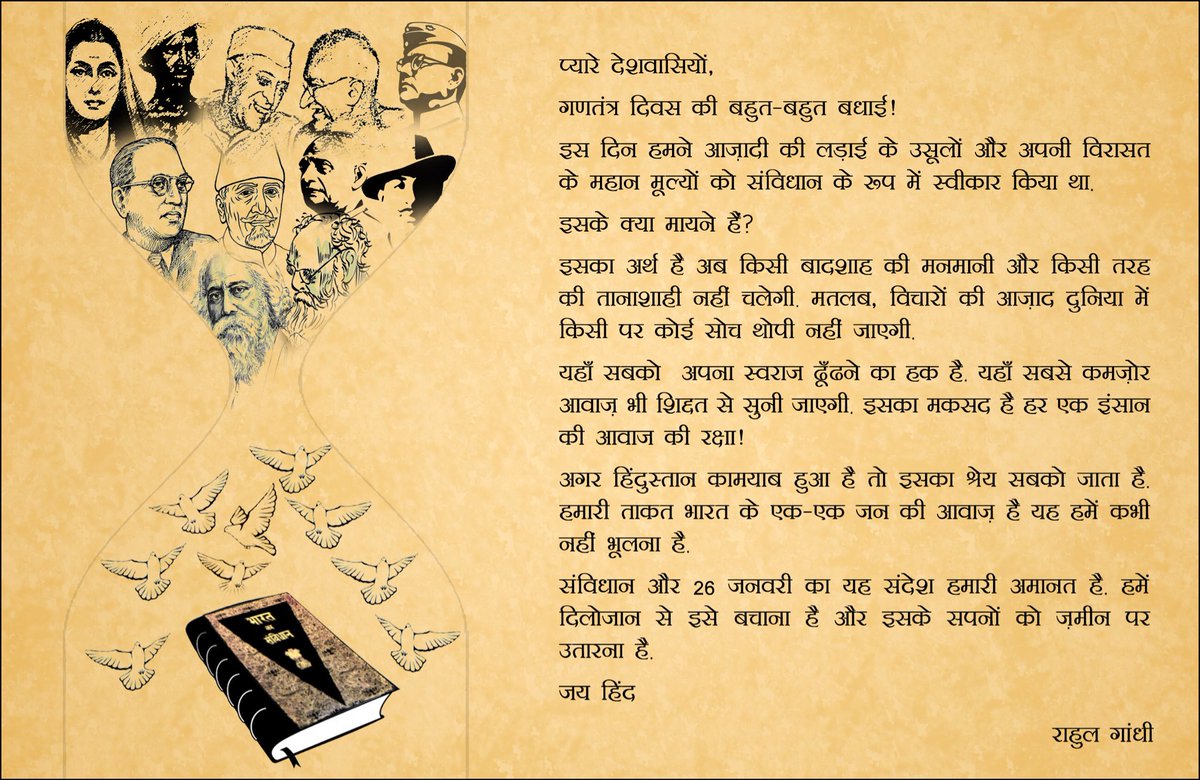 प्यारे देशवासियों,
गणतंत्र दिवस की बहुत-बहुत बधाई!
इस दिन हमने आज़ादी की लड़ाई के उसूलों और अपनी विरासत
के महान मूल्यों को संविधान के रूप में स्वीकार किया था.
इसके क्या मायने हैं?
इसका अर्थ है अब किसी बादशाह की मनमानी और किसी तरह
की तानाशाही नहीं चलेगी. मतलब, विचारों की आज़ाद दुनिया में
किसी पर कोई सोच थोपी नहीं जाएगी.
यहाँ सबको अपना स्वराज ढूँढने का हक है. यहाँ सबसे कमज़ोर
आवाज़ भी शिद्दत से सुनी जाएगी. इसका मकसद है हर एक इंसान
की आवाज की रक्षा!
अगर हिंदुस्तान कामयाब हुआ है तो इसका श्रेय सबको जाता है.
हमारी ताकत भारत के एक-एक जन की आवाज़ है यह हमें कभी
नहीं भूलना है.
संविधान और 26 जनवरी का यह संदेश हमारी अमानत है. हमें
दिलोजान से इसे बचाना है और इसके सपनों को ज़मीन पर
उतारना है.
जय हिंद
राहुल गांधी
भारत
का
संविधान